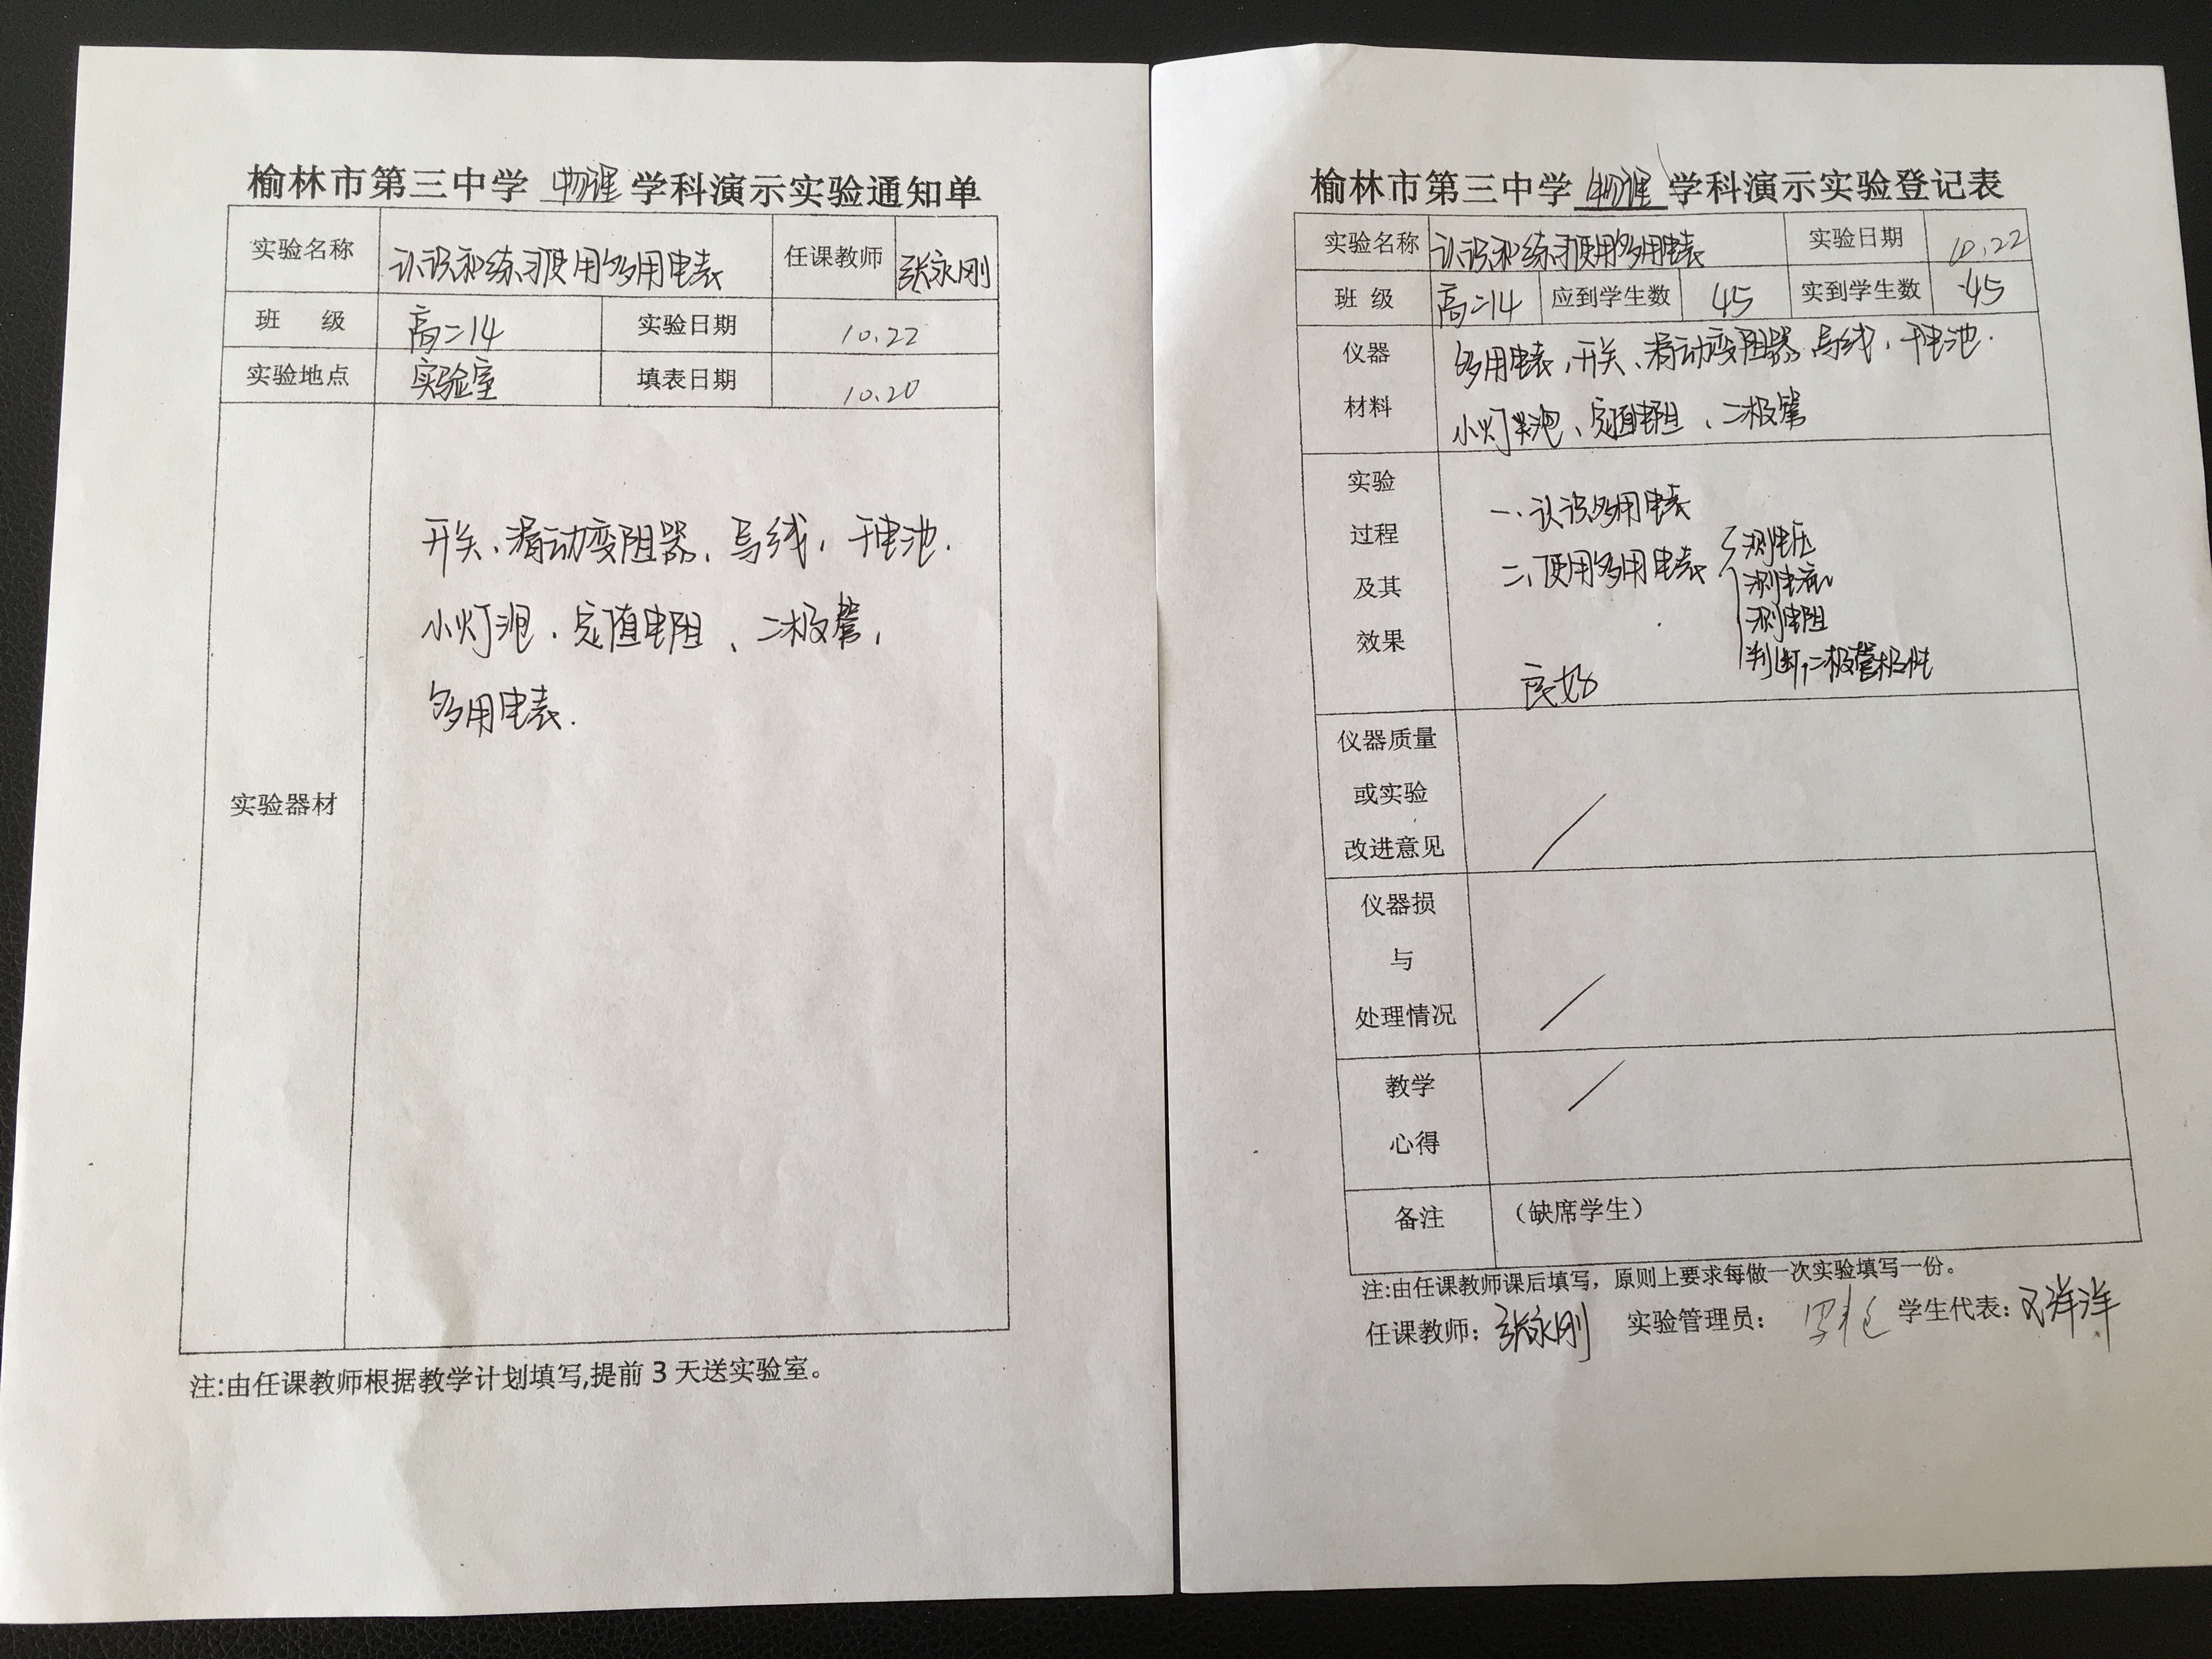 榆林市第三中学 物理 学科演示实验通知单
实验名称 认识和练习使用多用电表 任课教师 张永刚
班 级 高二14 实验日期 10.22
实验地点 实验室 填表日期 10.20
实验器材
开关、滑动变阻器、导线，干电池.
小灯泡、定值电阻、二极管，
多用电表.
注:由任课教师根据教学计划填写,提前3天送实验室。
榆林市第三中学 物理 学科演示实验登记表
实验名称 认识和练习使用多用电表 实验日期 10.22
班 级 高二14 应到学生数 45 实到学生数 45
仪器
材料
多用电表，开关、滑动变阻器、导线，干电池.
小灯泡、定值电阻、二极管
实验
过程
及其
效果
一、认识多用电表
二、使用多用电表 { 测电压
测电流
测电阻
判断二极管极性
良好
仪器质量
或实验
改进意见
仪器损
与
处理情况
教学
心得
备注 （缺席学生）
注:由任课教师课后填写，原则上要求每做一次实验填写一份。
任课教师：张永刚 实验管理员： 学生代表：